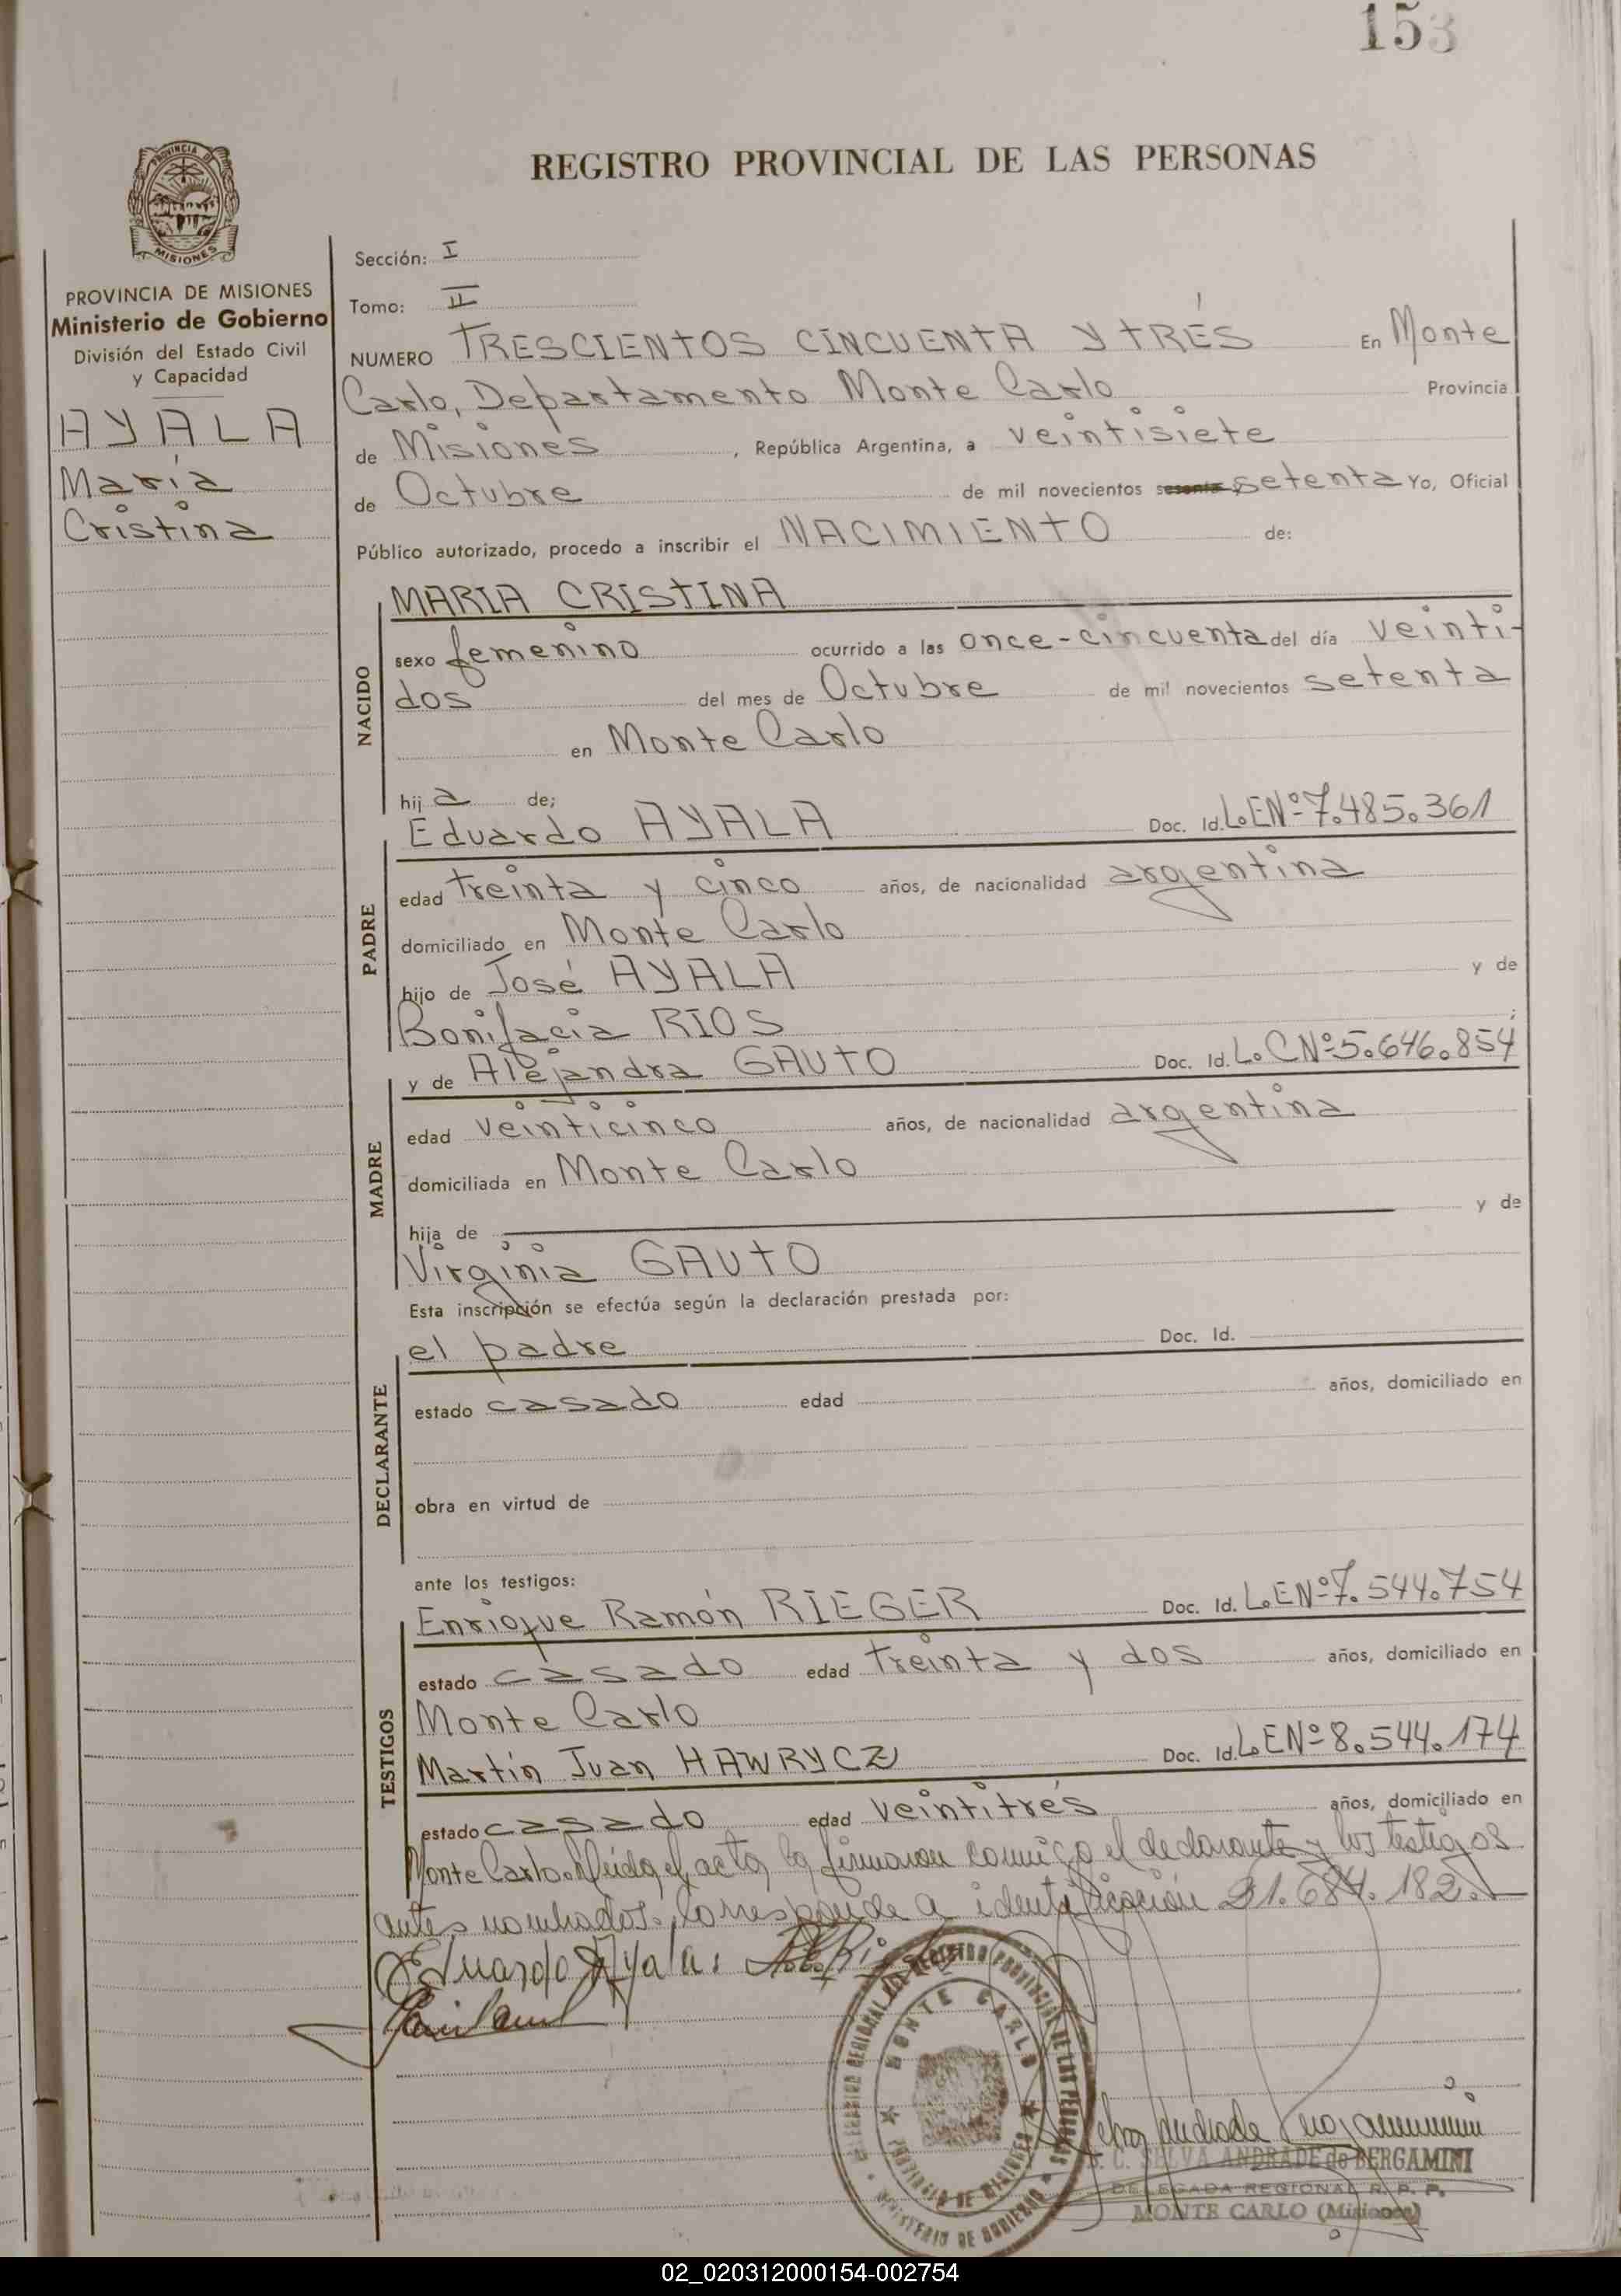 153
PROVINCIA DE
MISIONES
REGISTRO PROVINCIAL DE LAS PERSONAS
PROVINCIA DE MISIONES
Ministerio de Gobierno
División del Estado Civil
y Capacidad
AYALA
María
Cristina
Sección: I
Tomo: II
NUMERO TRESCIENTOS CINCUENTA Y TRÉS En Monte
Carlo, Departamento Monte Carlo Provincia
de Misiones, República Argentina, a veintisiete
de Octubre de mil novecientos sesenta setenta Yo, Oficial
Público autorizado, procedo a inscribir el NACIMIENTO de:
NACIDO
MARIA CRISTINA
sexo femenino ocurrido a las once-cincuenta del día veinti-
dos del mes de Octubre de mil novecientos setenta
en Monte Carlo
hija de;
PADRE
Eduardo AYALA Doc. Id. L.E.Nº 7.485.361
edad treinta y cinco años, de nacionalidad argentina
domiciliado en Monte Carlo
hijo de José AYALA y de
Bonifacia RIOS ;
MADRE
y de Alejandra GAUTO Doc. Id. L.C.Nº 5.646.854
edad veinticinco años, de nacionalidad argentina
domiciliada en Monte Carlo
hija de y de
Virginia GAUTO
Esta inscripción se efectúa según la declaración prestada por:
DECLARANTE
el padre Doc. Id.
estado casado edad años, domiciliado en
obra en virtud de
ante los testigos:
TESTIGOS
Enrique Ramón RIEGER Doc. Id. L.E.Nº 7.544.754
estado casado edad treinta y dos años, domiciliado en
Monte Carlo
Martín Juan HAWRYCZ Doc. Id. L.E.Nº 8.544.174
estado casado edad veintitrés años, domiciliado en
Monte Carlo. Leída el acta, la firmaron conmigo el declarante y los testigos
antes nombrados. Corresponde a identificación 21.684.182.
Eduardo Ayala
MONTE CARLO
PROVINCIA DE MISIONES
MINISTERIO DE GOBIERNO
S. C. SELVA ANDRADE de BERGAMINI
DELEGADA REGIONAL R. P. P.
MONTE CARLO (Misiones)
02_020312000154-002754